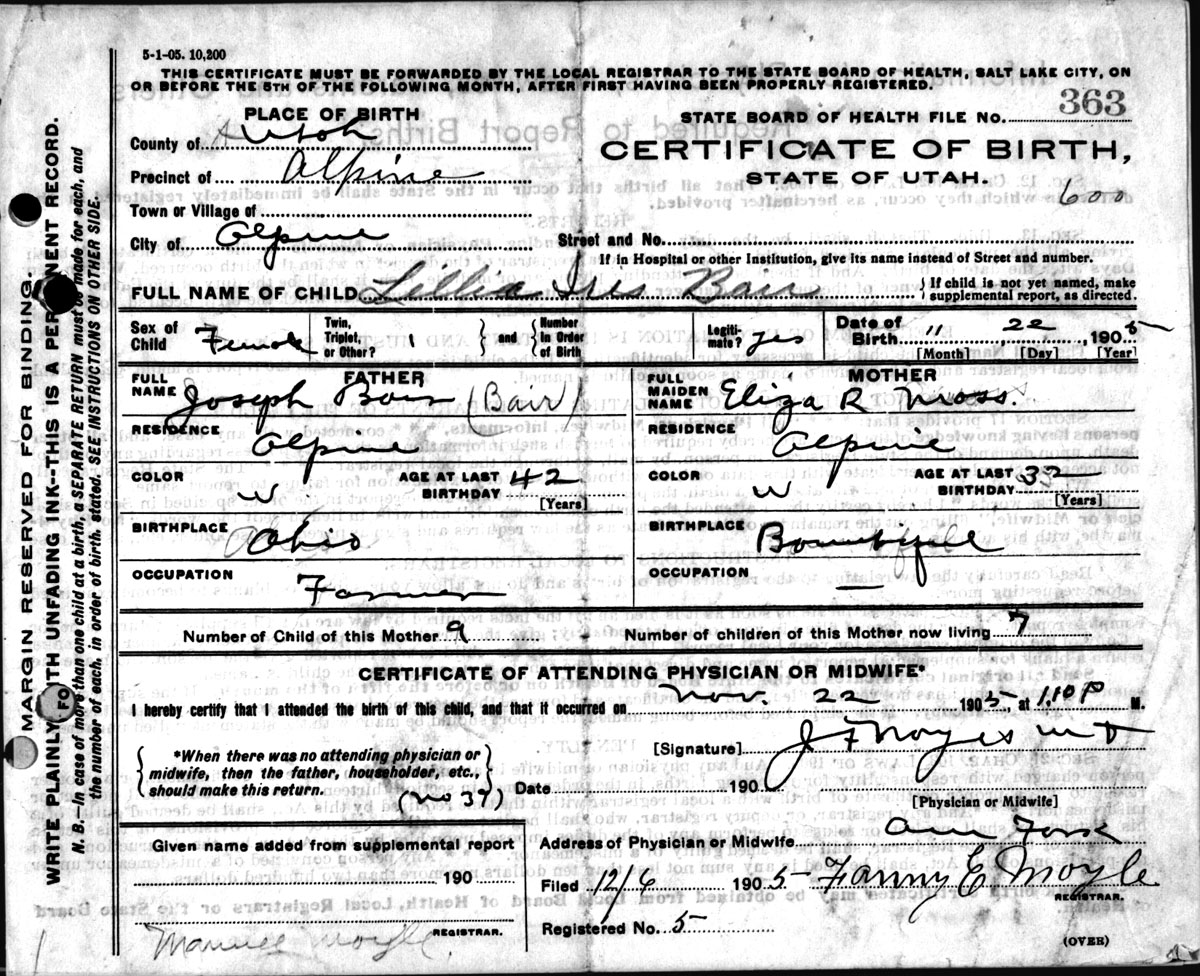 5-1-05. 10,200
THIS CERTIFICATE MUST BE FORWARDED BY THE LOCAL REGISTRAR TO THE STATE BOARD OF HEALTH, SALT LAKE CITY, ON
OR BEFORE THE 5TH OF THE FOLLOWING MONTH, AFTER FIRST HAVING BEEN PROPERLY REGISTERED.
PLACE OF BIRTH
STATE BOARD OF HEALTH FILE No. 363
County of Utah
CERTIFICATE OF BIRTH,
Precinct of Alpine
STATE OF UTAH.
600
Town or Village of
City of Alpine
Street and No.
If in Hospital or other Institution, give its name instead of Street and number.
FULL NAME OF CHILD Lillia Ires Barr
} If child is not yet named, make
supplemental report, as directed.
Sex of Child Female
Twin, Triplet, or Other? 1 } and { Number in Order of Birth
Legitimate? yes
Date of Birth 11 22 1905
[Month] [Day] [Year]
FATHER
FULL NAME Joseph Barr (Barr)
RESIDENCE Alpine
COLOR W
AGE AT LAST BIRTHDAY 42
[Years]
BIRTHPLACE Ohio
OCCUPATION Farmer
MOTHER
FULL MAIDEN NAME Eliza R Moss.
RESIDENCE Alpine
COLOR W
AGE AT LAST BIRTHDAY 33
[Years]
BIRTHPLACE
OCCUPATION —
Number of Child of this Mother 9
Number of children of this Mother now living 7
CERTIFICATE OF ATTENDING PHYSICIAN OR MIDWIFE*
I hereby certify that I attended the birth of this child, and that it occurred on Nov. 22 1905, at 1,10 P M.
{ *When there was no attending physician or
midwife, then the father, householder, etc.,
should make this return. }
(No 37)
[Signature] J F Noyes M D
Date 190
[Physician or Midwife]
Given name added from supplemental report
190
Address of Physician or Midwife Am Fork
Filed 12/6 1905 Fanny E Moyle
REGISTRAR.
Registered No. 5
Moyle
REGISTRAR.
(OVER)
MARGIN RESERVED FOR BINDING.
WRITE PLAINLY WITH UNFADING INK--THIS IS A PERMANENT RECORD.
N. B.—In case of more than one child at a birth, a SEPARATE RETURN must be made for each, and
the number of each, in order of birth, stated. SEE INSTRUCTIONS ON OTHER SIDE.